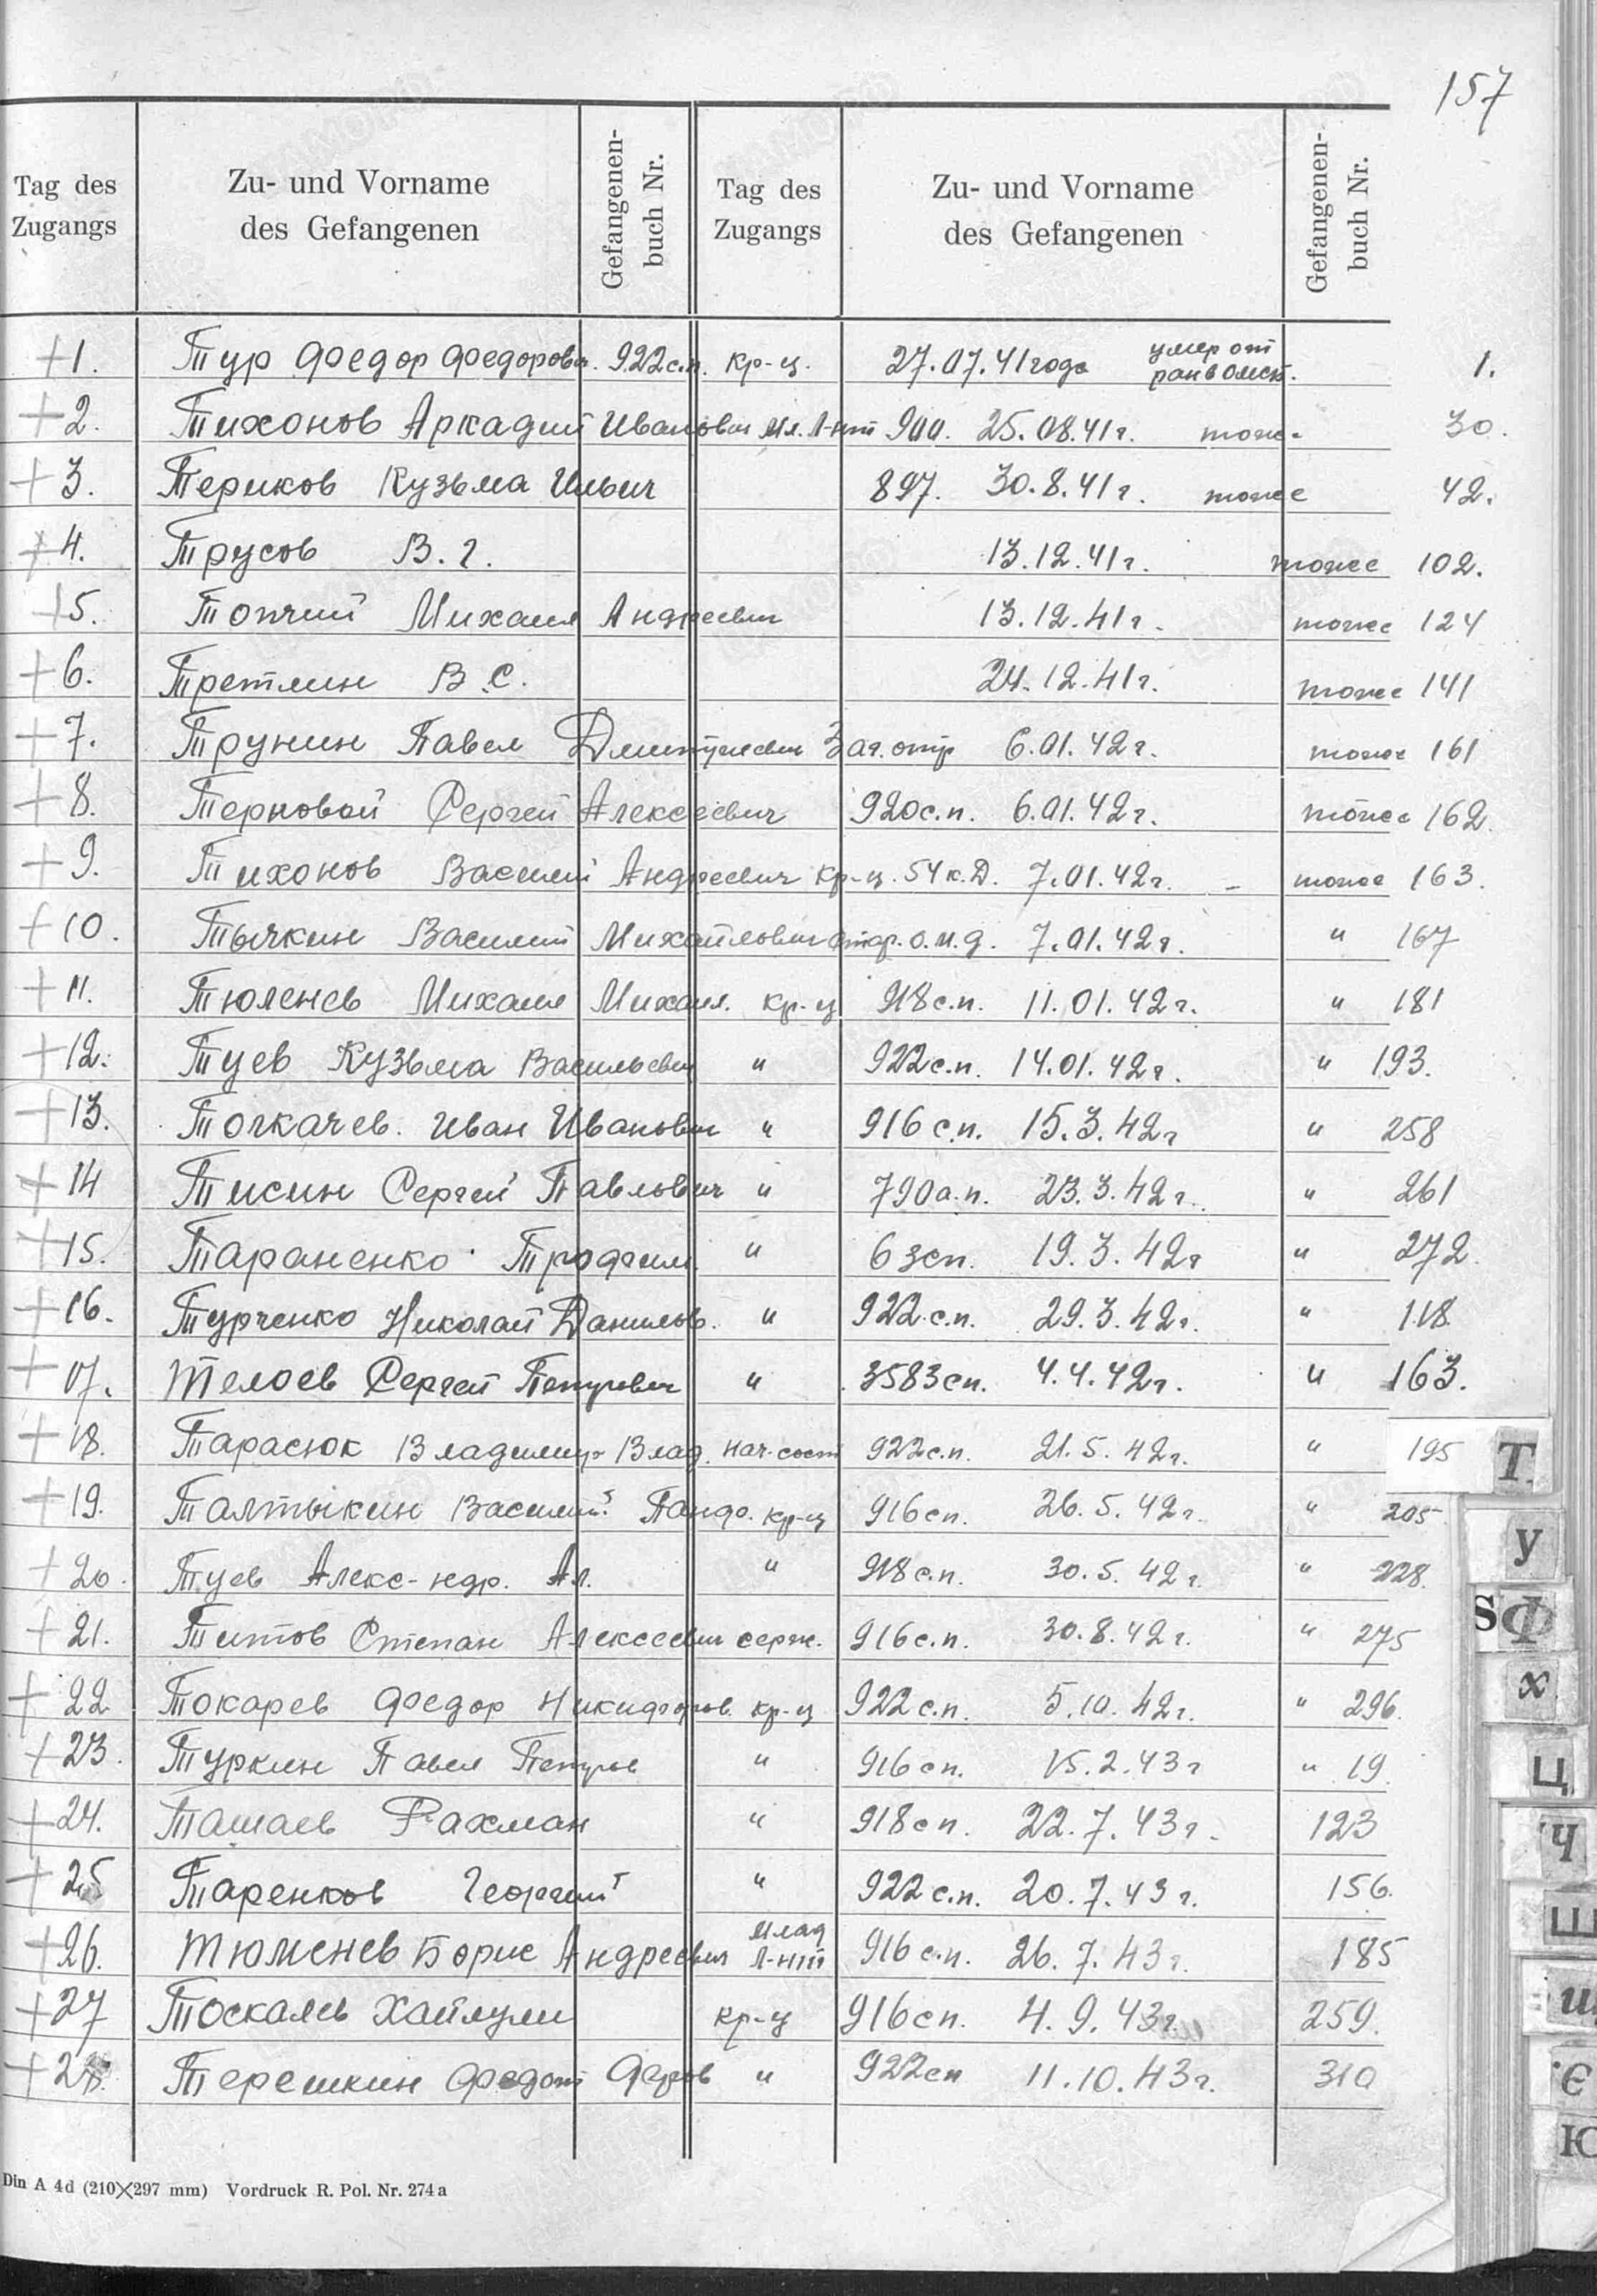 157
Tag des Zugangs
Zu- und Vorname des Gefangenen
Gefangenen-buch Nr.
Tag des Zugangs
Zu- und Vorname des Gefangenen
Gefangenen-buch Nr.
+ 1. Тур Федор Федорович. 922 с.п. кр-ц. 27.07.41 года умер от ран в омсб. 1.
+ 2. Тихонов Аркадий Иванович Мл. Л-нт 900. 25.08.41 г. тоже 30.
+ 3. Териков Кузьма Ильич 897. 30.8.41 г. тоже 42.
+ 4. Трусов В. Г. 13.12.41 г. тоже 102.
+ 5. Топчий Михаил Андреевич 13.12.41 г. тоже 124
+ 6. Третлин В.С. 24.12.41 г. тоже 141
+ 7. Трунин Павел Дмитриевич Заг. отр 6.01.42 г. тоже 161
+ 8. Терновой Сергей Алексеевич 920 с.п. 6.01.42 г. тоже 162.
+ 9. Тихонов Василий Андреевич кр-ц. 54 к.Д. 7.01.42 г. - тоже 163.
+ 10. Тычкин Василий Михайлович 7.01.42 г. " 167
+ 11. Тюленев Михаил Михаил. кр-ц 918 с.п. 11.01.42 г. " 181
+ 12. Туев Кузьма Васильевич " 922 с.п. 14.01.42 г. " 193.
+ 13. Толкачев. Иван Иванович " 916 с.п. 15.3.42 г " 258
+ 14 Тисин Сергей Павлович " 790 а.п. 23.3.42 г. " 261
+ 15. Тараненко Трофим. " 6 зсп. 19.3.42 г " 272.
+ 16. Турченко Николай Данилов. " 922 с.п. 29.3.42 г. " 118.
+ 17. Телоев Сергей Петрович " 3583 сп. 4.4.42 г. " 163.
+ 18. Тарасюк Владимир Влад. нач-сост 922 с.п. 21.5.42 г. " 195
+ 19. Талтыкин Василий кр-ц 916 сп. 26.5.42 г. " 205
+ 20. Туев Алекс-ндр. Ал. " 918 с.п. 30.5.42 г. " 228.
+ 21. Титов Степан Алексеевич серж. 916 с.п. 30.8.42 г. " 275
+ 22 Токарев Федор Никифоров. кр-ц 922 с.п. 5.10.42 г. " 296.
+ 23. Туркин Павел Петров " 916 сп. 15.2.43 г " 19.
+ 24. Ташаев Рахман " 918 сп. 22.7.43 г. 123
+ 25 Таренков Георгий " 922 с.п. 20.7.43 г. 156.
+ 26. Тюменев Борис Андреевич Млад Л-нт 916 с.п. 26.7.43 г. 185
+ 27 Тоскаев Хайлули кр-ц 916 сп. 4.9.43 г. 259.
+ 28. Терешкин Федот " 922 сп 11.10.43 г. 310
Din A 4d (210×297 mm) Vordruck R. Pol. Nr. 274 a
Т
У
S Ф
Х
Ц
Ч
Ш
Щ
Э
Ю